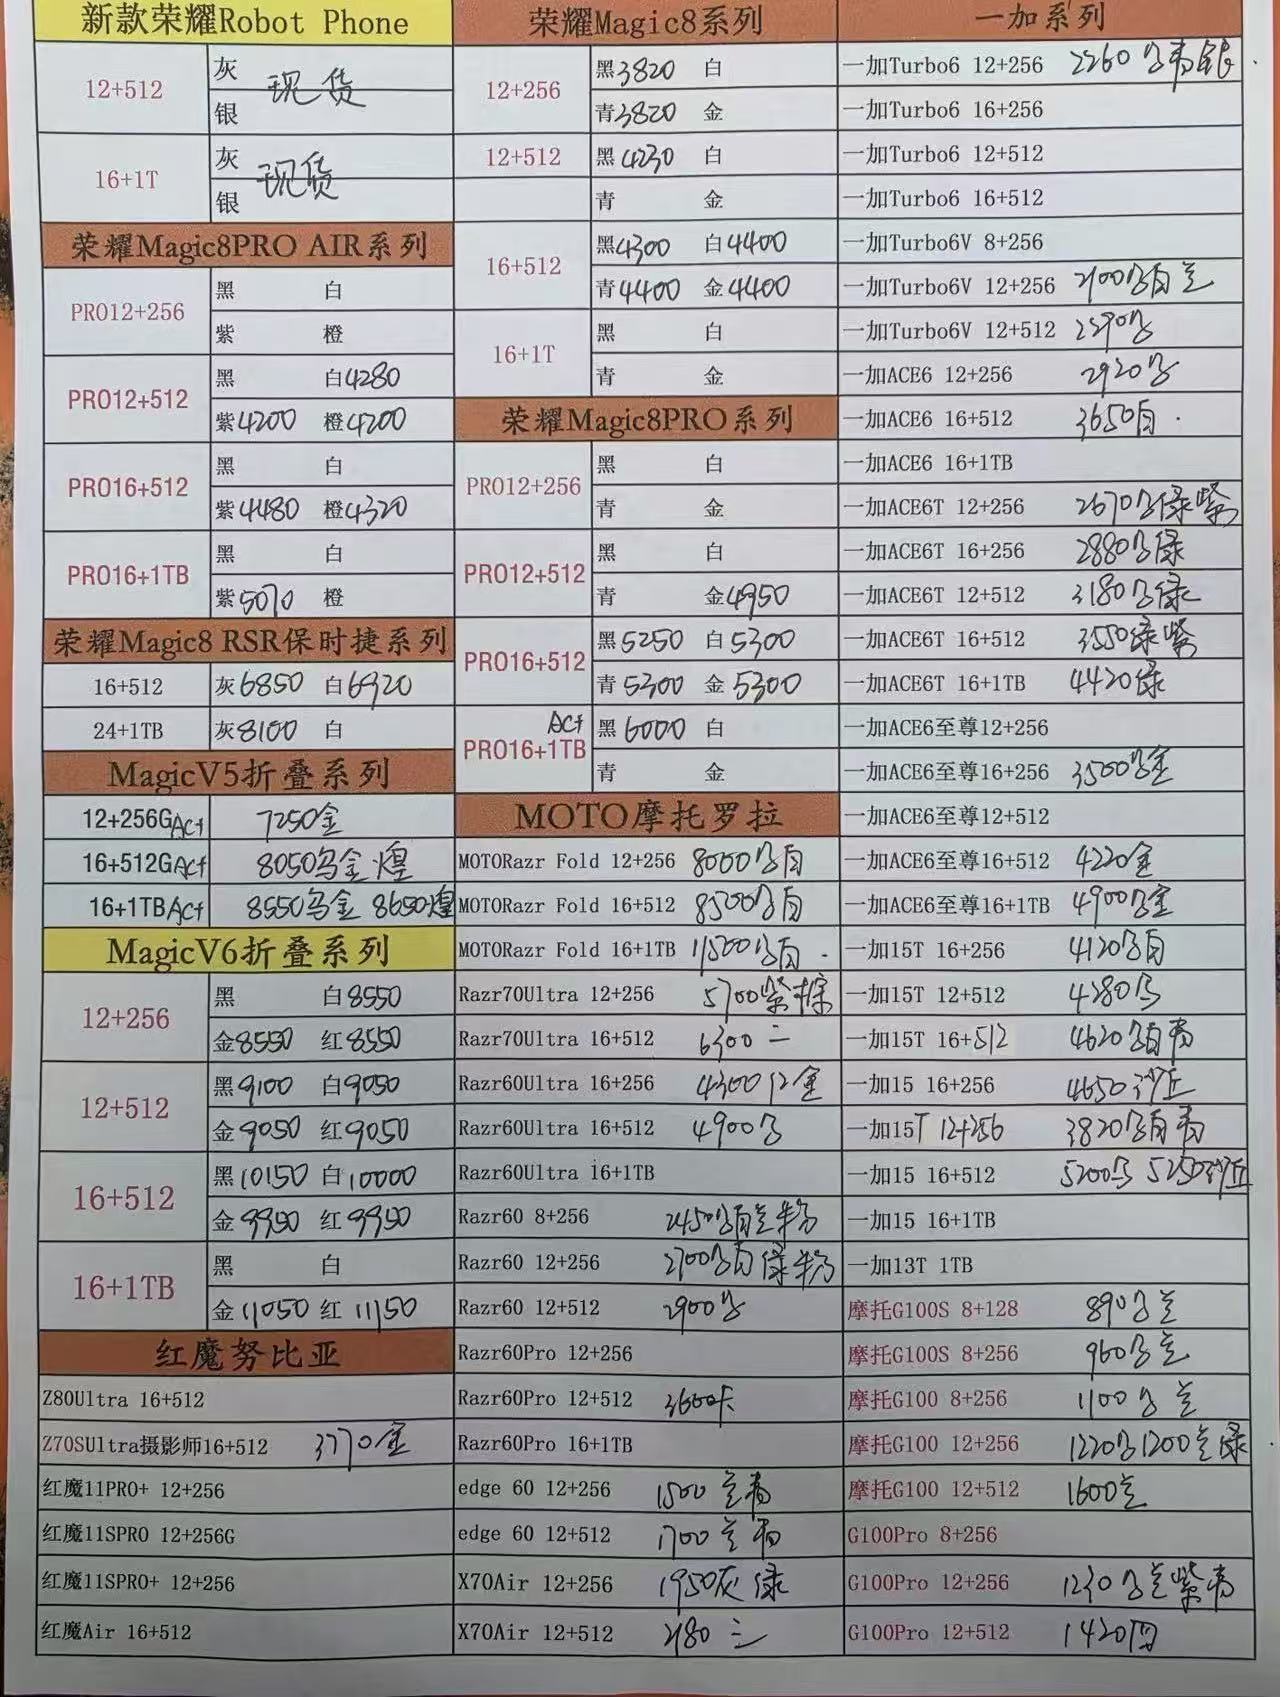 新款荣耀Robot Phone
12+512
灰 现货
银
16+1T
灰 现货
银
荣耀Magic8PRO AIR系列
PRO12+256
黑 白
紫 橙
PRO12+512
黑 白4280
紫4200 橙4200
PRO16+512
黑 白
紫4480 橙4320
PRO16+1TB
黑 白
紫5070 橙
荣耀Magic8 RSR保时捷系列
16+512 灰6850 白6920
24+1TB 灰8100 白
MagicV5折叠系列
12+256G Act 7250金
16+512G Act 8050乌金 煌
16+1TB Act 8550乌金 8650煌
MagicV6折叠系列
12+256
黑 白8550
金8550 红8550
12+512
黑9100 白9050
金9050 红9050
16+512
黑10150 白10000
金9950 红9950
16+1TB
黑 白
金11050 红11150
红魔努比亚
Z80Ultra 16+512
Z70SUltra摄影师16+512 3770金
红魔11PRO+ 12+256
红魔11SPRO 12+256G
红魔11SPRO+ 12+256
红魔Air 16+512
荣耀Magic8系列
12+256
黑3820 白
青3820 金
12+512
黑4230 白
青 金
16+512
黑4300 白4400
青4400 金4400
16+1T
黑 白
青 金
荣耀Magic8PRO系列
PRO12+256
黑 白
青 金
PRO12+512
黑 白
青 金4950
PRO16+512
黑5250 白5300
青5300 金5300
PRO16+1TB Act
黑6000 白
青 金
MOTO摩托罗拉
MOTORazr Fold 12+256 8000乌白
MOTORazr Fold 16+512 8500乌白
MOTORazr Fold 16+1TB 11500乌白
Razr70Ultra 12+256 5700紫棕
Razr70Ultra 16+512 6300二
Razr60Ultra 16+256 4300红金
Razr60Ultra 16+512 4900乌
Razr60Ultra 16+1TB
Razr60 8+256 2450乌白兰粉
Razr60 12+256 2700乌白绿粉
Razr60 12+512 2900乌
Razr60Pro 12+256
Razr60Pro 12+512 3600卡
Razr60Pro 16+1TB
edge 60 12+256 1500兰青
edge 60 12+512 1700兰青
X70Air 12+256 1950灰绿
X70Air 12+512 2180三
一加系列
一加Turbo6 12+256 2260乌青银
一加Turbo6 16+256
一加Turbo6 12+512
一加Turbo6 16+512
一加Turbo6V 8+256
一加Turbo6V 12+256 2100乌白兰
一加Turbo6V 12+512 2590乌
一加ACE6 12+256 2920乌
一加ACE6 16+512 3650白
一加ACE6 16+1TB
一加ACE6T 12+256 2670乌绿紫
一加ACE6T 16+256 2880乌绿
一加ACE6T 12+512 3180乌绿
一加ACE6T 16+512 3550绿紫
一加ACE6T 16+1TB 4420绿
一加ACE6至尊12+256
一加ACE6至尊16+256 3500乌金
一加ACE6至尊12+512
一加ACE6至尊16+512 4220金
一加ACE6至尊16+1TB 4900乌金
一加15T 16+256 4120乌白
一加15T 12+512 4280乌
一加15T 16+512 4620乌白青
一加15 16+256 4650沙丘
一加15T 12+256 3820乌白青
一加15 16+512 5200乌 5250沙丘
一加15 16+1TB
一加13T 1TB
摩托G100S 8+128 890乌兰
摩托G100S 8+256 960乌兰
摩托G100 8+256 1100乌兰
摩托G100 12+256 1220乌1200兰绿
摩托G100 12+512 1600兰
G100Pro 8+256
G100Pro 12+256 1230乌兰紫青
G100Pro 12+512 1420四